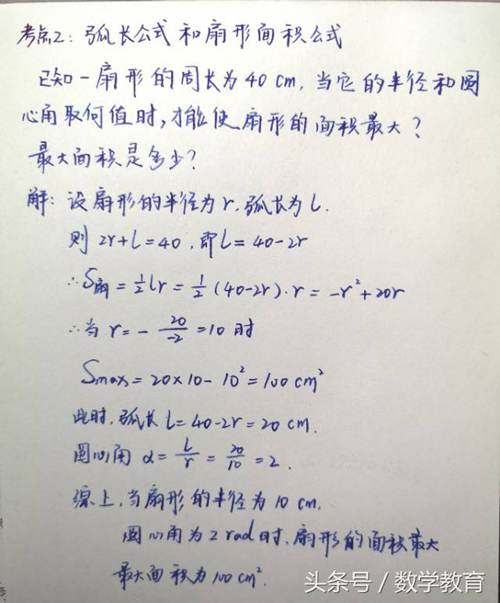 考点2：弧长公式和扇形面积公式
已知一扇形的周长为40 cm，当它的半径和圆
心角取何值时，才能使扇形的面积最大？
最大面积是多少？
解：设扇形的半径为r，弧长为l．
则 2r+l=40，即l=40-2r
∴S扇=½lr=½(40-2r)·r=-r²+20r
∴当 r=-20/-2=10 时
Smax=20×10-10²=100 cm²
此时，弧长 l=40-2r=20 cm．
圆心角 α=l/r=20/10=2．
综上，当扇形的半径为10 cm，
圆心角为2 rad时，扇形的面积最大
最大面积为100 cm²．
头条号 / 数学教育